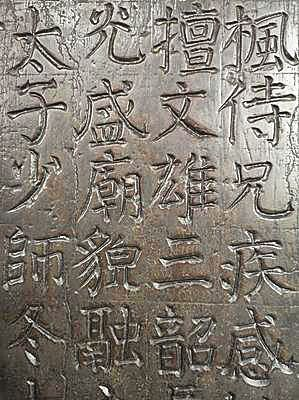 楓侍兄疾感
擅文雄二韶
光盛廟貌融
太子少師冬